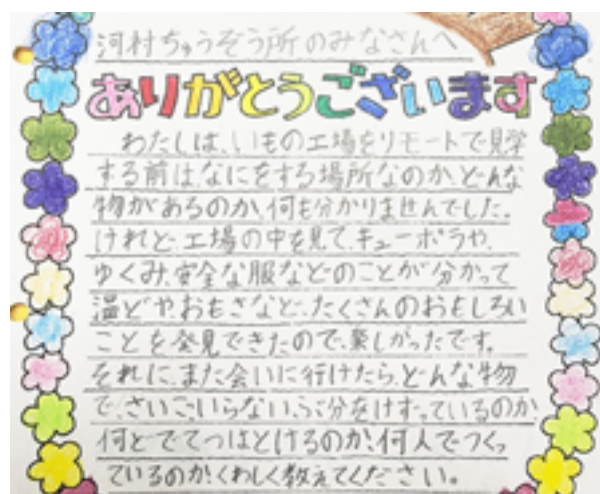 河村ちゅうぞう所のみなさんへ
ありがとうございます
わたしは、いもの工場をリモートで見学
する前は、なにをする場所なのか、どんな
物があるのか、何も分かりませんでした。
けれど、工場の中を見て、キューポラや、
ゆくみ、安全な服などのことが分かって
温どや、おもさなど、たくさんのおもしろい
ことを発見できたので、楽しかったです。
それに、また会いに行けたら、どんな物
で、さいごいらない、ぶ分をけずっているのか
何どでてつはとけるのか、何人でつくっ
ているのか、くわしく教えてください。